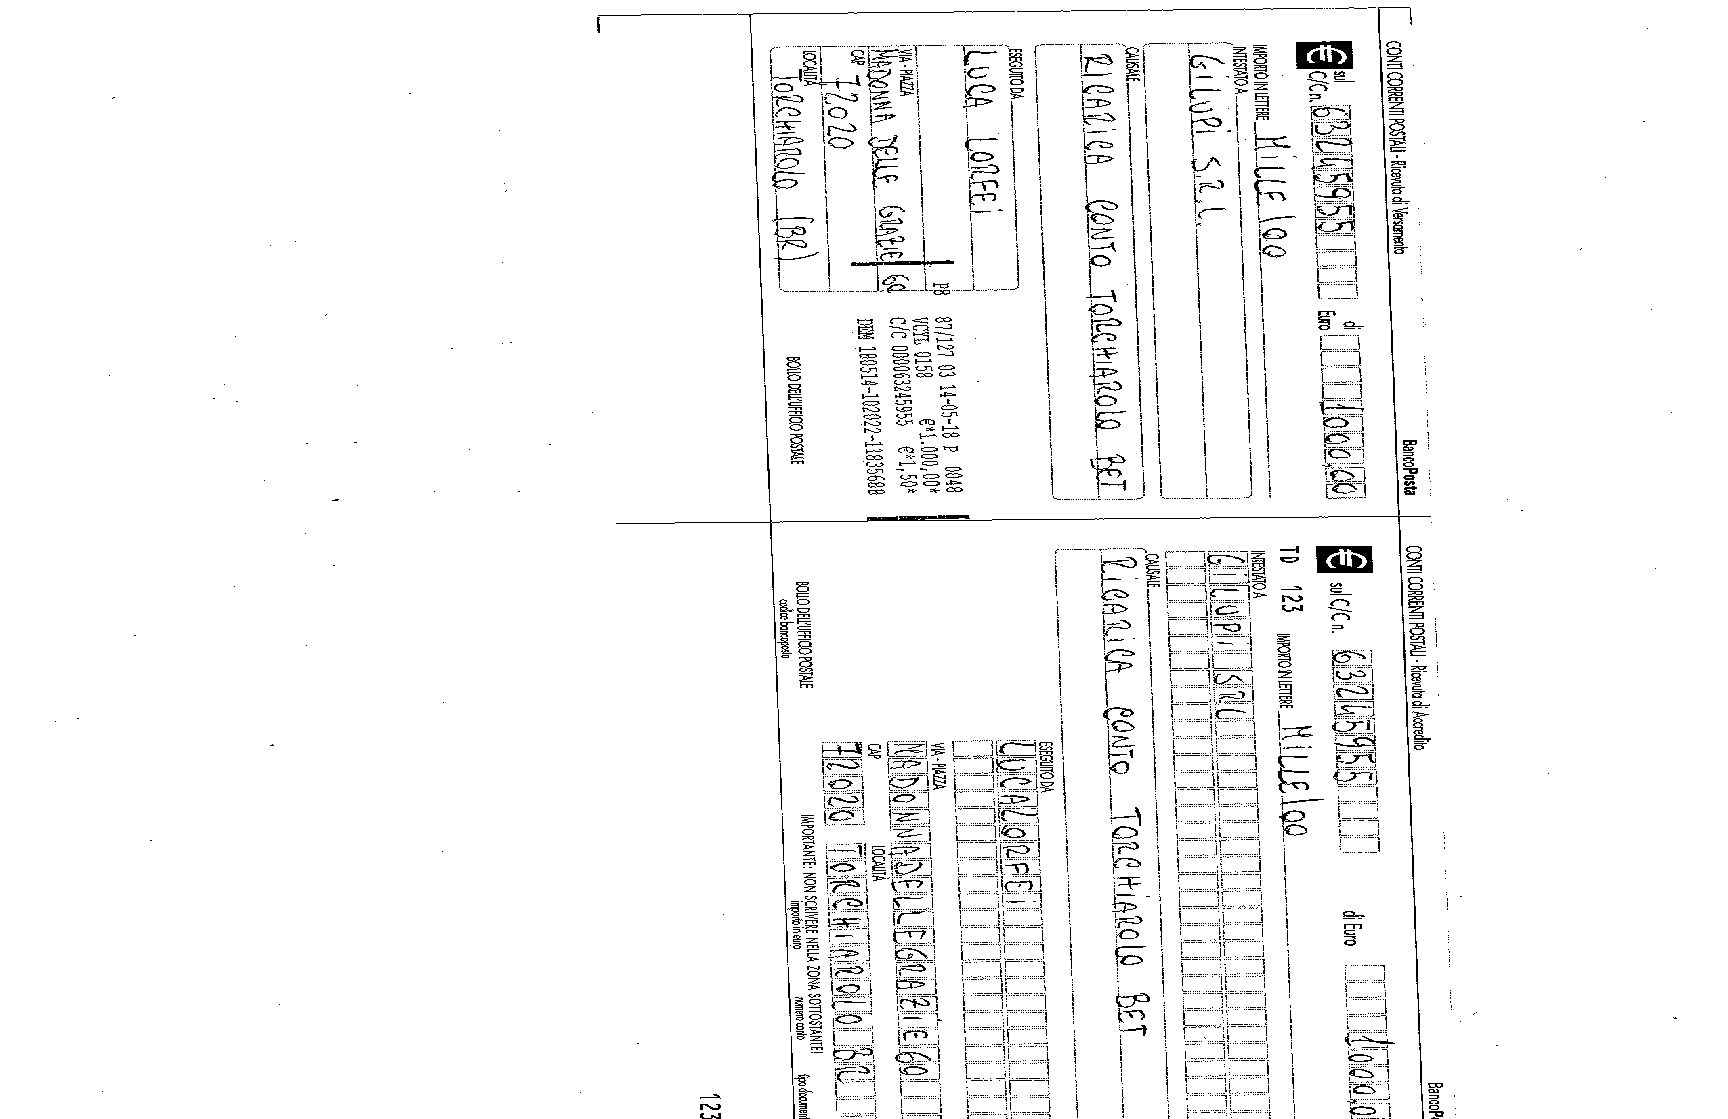 CONTI CORRENTI POSTALI - Ricevuta di Versamento
BancoPosta
€ sul C/C n. 63245955 di Euro 1000,00
IMPORTO IN LETTERE MILLE/00
INTESTATO A
GILUPI S.R.L.
CAUSALE
RICARICA CONTO TORCHIAROLO BET
ESEGUITO DA
LUCA LORFEI
VIA - PIAZZA
MADONNA DELLE GRAZIE 60
CAP
72020
LOCALITÀ
TORCHIAROLO (BR)
PB
87/127 03 14-05-18 P 0048
VCYL 0158 €*1.000,00*
C/C 000063245955 €*1,50*
BOLLO DELL'UFFICIO POSTALE
CONTI CORRENTI POSTALI - Ricevuta di Accredito
BancoP
€ sul C/C n. 63245955 di Euro 1000,0
TD 123 IMPORTO IN LETTERE MILLE/00
INTESTATO A
GILUPI SRL
CAUSALE
RICARICA CONTO TORCHIAROLO BET
ESEGUITO DA
LUCA LORFEI
VIA - PIAZZA
MADONNA DELLE GRAZIE 60
CAP LOCALITÀ
72020 TORCHIAROLO BR
BOLLO DELL'UFFICIO POSTALE
codice bancoposta
IMPORTANTE: NON SCRIVERE NELLA ZONA SOTTOSTANTE!
importo in euro numero conto tipo document
123